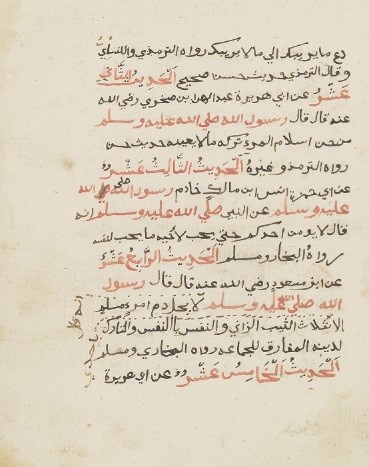 دع ما يريبك الي ما لا يريبك رواه الترمذي والنسائي
وقال الترمذي حديث حسن صحيح الحديث الثاني
عشر عن ابي هريرة عبد الرحمن بن صخر رضي الله
عنه قال قال رسول الله صلي الله عليه وسلم
من حسن اسلام المرء تركه ما لا يعنيه حديث حسن
رواه الترمذي وغيره الحديث الثالث عشر
عن ابي حمزة انس ابن مالك خادم رسول الله صلي الله
عليه وسلم عن النبي صلي الله عليه وسلم انه
قال لا يومن احدكم حتي يحب لاخيه ما يحب لنفسه
رواه البخاري ومسلم الحديث الرابع عشر
عن ابن مسعود رضي الله عنه قال قال رسول
الله صلي الله عليه وسلم لا يحل دم امرء مسلم
الا بثلاث الثيب الزاني والنفس بالنفس والتارك
لدينه المفارق للجماعه رواه البخاري ومسلم
الحديث الخامس عشر عن ابي هريرة